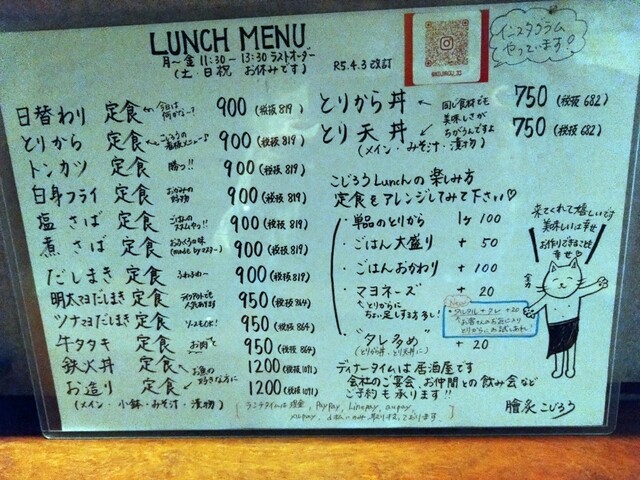 LUNCH MENU
月〜金 11:30-13:30 ラストオーダー
(土・日祝 お休みです)
R5.4.3 改訂
インスタグラム
やっています!
日替わり 定食 今日は何かな〜? 900 (税抜 819)
とりから 定食 こじろうの看板メニュー♪ 900 (税抜 819)
トンカツ 定食 勝つ!! 900 (税抜 819)
白身フライ 定食 おかみの好物 900 (税抜 819)
塩さば 定食 ごはんのススムやつ!! 900 (税抜 819)
煮さば 定食 おふくろの味 900 (税抜 819)
だしまき 定食 ふわふわー 900 (税抜 819)
明太マヨだしまき 定食 テイクアウトでも人気あります 950 (税抜 864)
ツナマヨだしまき 定食 950 (税抜 864)
牛タタキ 定食 お肉 950 (税抜 864)
鉄火丼 定食 お魚の 1200 (税抜 1091)
お造り 定食 好きな方に 1200 (税抜 1091)
(メイン・小鉢・みそ汁・漬物)
とりから丼 同じ食材でも 750 (税抜 682)
美味しさが
とり天丼 ちがうんですよ 750 (税抜 682)
(メイン・みそ汁・漬物)
こじろうLunchの楽しみ方
定食もアレンジしてみて下さい♡
・単品のとりから 1ヶ 100
・ごはん大盛り + 50
・ごはんおかわり + 100
・マヨネーズ + 20
とりからに
ちょい足しする方多し!
・タレ多め + 20
(とりから丼、とり天丼に)
New
・タルタル+タレ +20
お客さんのお気に入り
とりからにお試しあれ!
来てくれて嬉しいです
美味しいは幸せ
お作りできることも
幸せ♡
ディナータイムは居酒屋です
会社のご宴会、お仲間との飲み会など
ご予約も承ります!!
ランチタイムは現金、PayPay, Linepay, aupay,
膾炙 こじろう